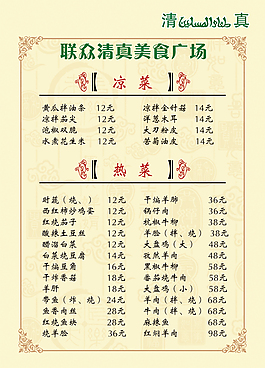 清 真
联众清真美食广场
凉菜
黄瓜拌油条 12元 凉拌金针菇 14元
凉拌茄尖 12元 洋葱木耳 14元
泡椒双脆 12元 大刀粉皮 14元
水煮花生米 12元 苦菊油皮 14元
热菜
时蔬（烧、） 12元 干煸羊肺 36元
西红柿炒鸡蛋 12元 锅仔肉 36元
红烧茄子 12元 杭椒牛柳 38元
酸辣土豆丝 12元 羊脸（拌、烧） 38元
醋溜白菜 12元 大盘鸡（大） 48元
白菜烧豆腐 14元 孜然羊肉 48元
干煸豆角 16元 黑椒牛柳 58元
干炸香菇 18元 番茄烧牛肉 58元
羊肝 18元 大盘鸡（小） 58元
带鱼（炸、烧） 24元 羊肉（拌、烧） 68元
鱼香肉丝 28元 牛肉（拌、烧） 68元
红烧鱼块 28元 麻辣鱼 68元
烧羊脸 36元 红焖羊肉 98元